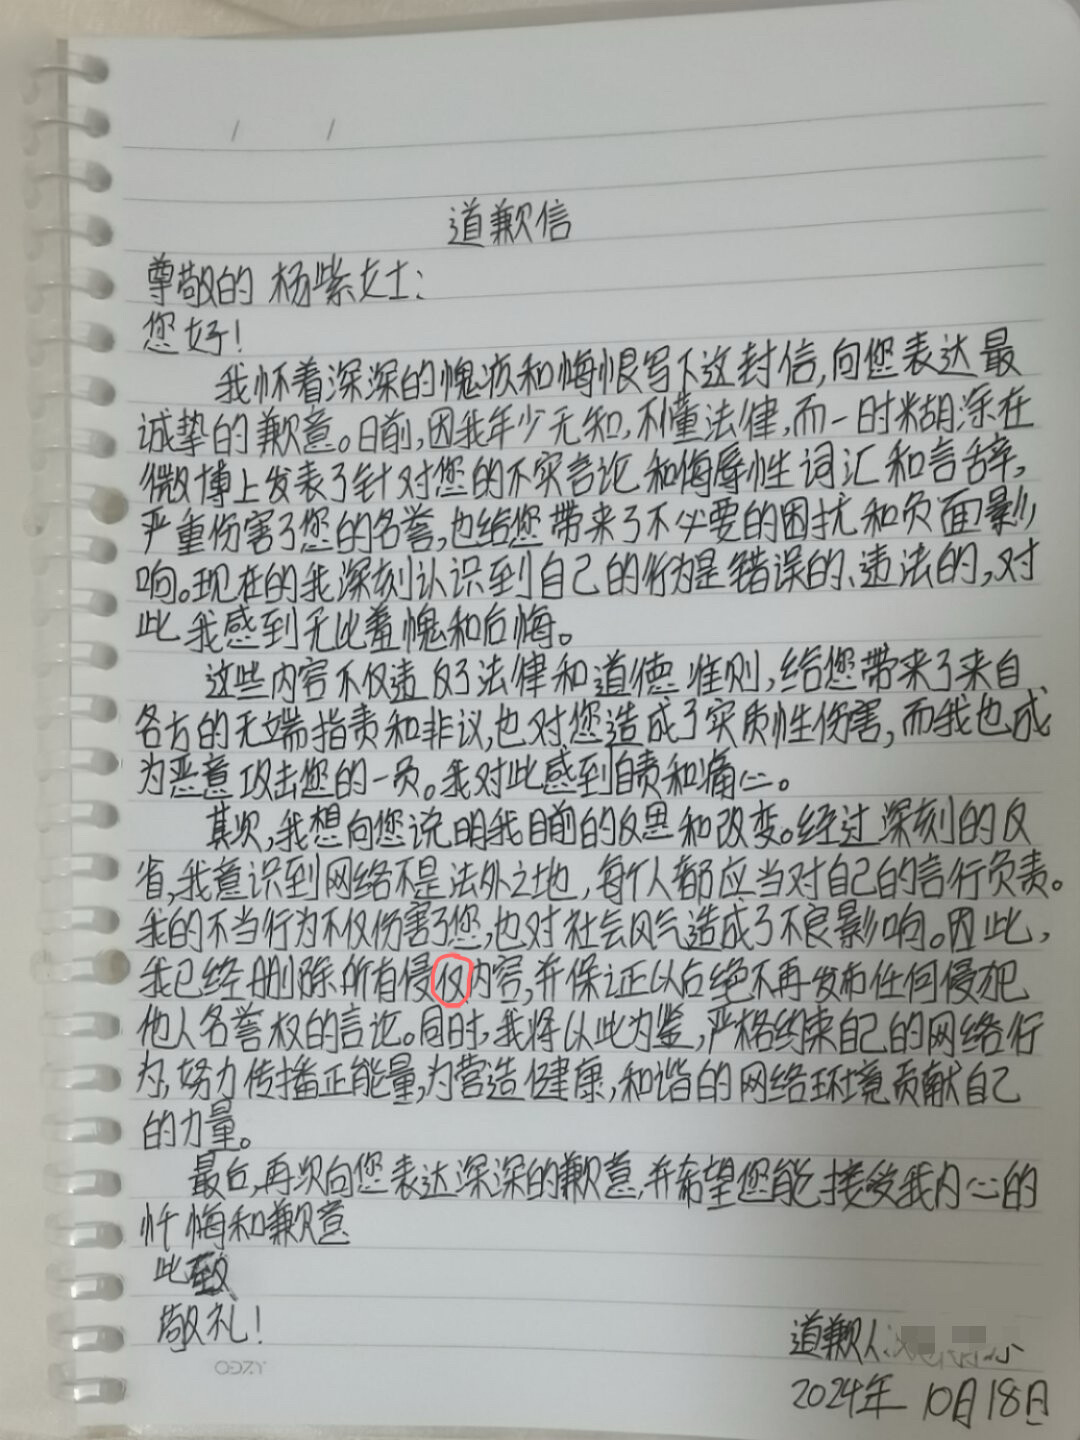 / /
道歉信
尊敬的 杨紫女士:
您好!
我怀着深深的愧疚和悔恨写下这封信,向您表达最
诚挚的歉意。日前,因我年少无知,不懂法律,而一时糊涂在
微博上发表了针对您的不实言论和侮辱性词汇和言辞,
严重伤害了您的名誉,也给您带来了不必要的困扰和负面影
响。现在的我深刻认识到自己的行为是错误的、违法的,对
此我感到无比羞愧和后悔。
这些内容不仅违反了法律和道德准则,给您带来了来自
各方的无端指责和非议,也对您造成了实质性伤害,而我也成
为恶意攻击您的一员。我对此感到自责和痛心。
其次,我想向您说明我目前的反思和改变。经过深刻的反
省,我意识到网络不是法外之地,每个人都应当对自己的言行负责。
我的不当行为不仅伤害了您,也对社会风气造成了不良影响。因此,
我已经删除所有侵仅内容,并保证以后绝不再发布任何侵犯
他人名誉权的言论。同时,我将以此为鉴,严格约束自己的网络行
为,努力传播正能量,为营造健康,和谐的网络环境贡献自己
的力量。
最后,再次向您表达深深的歉意,并希望您能接受我内心的
忏悔和歉意
此致
敬礼!
道歉人:
2024年 10月18日